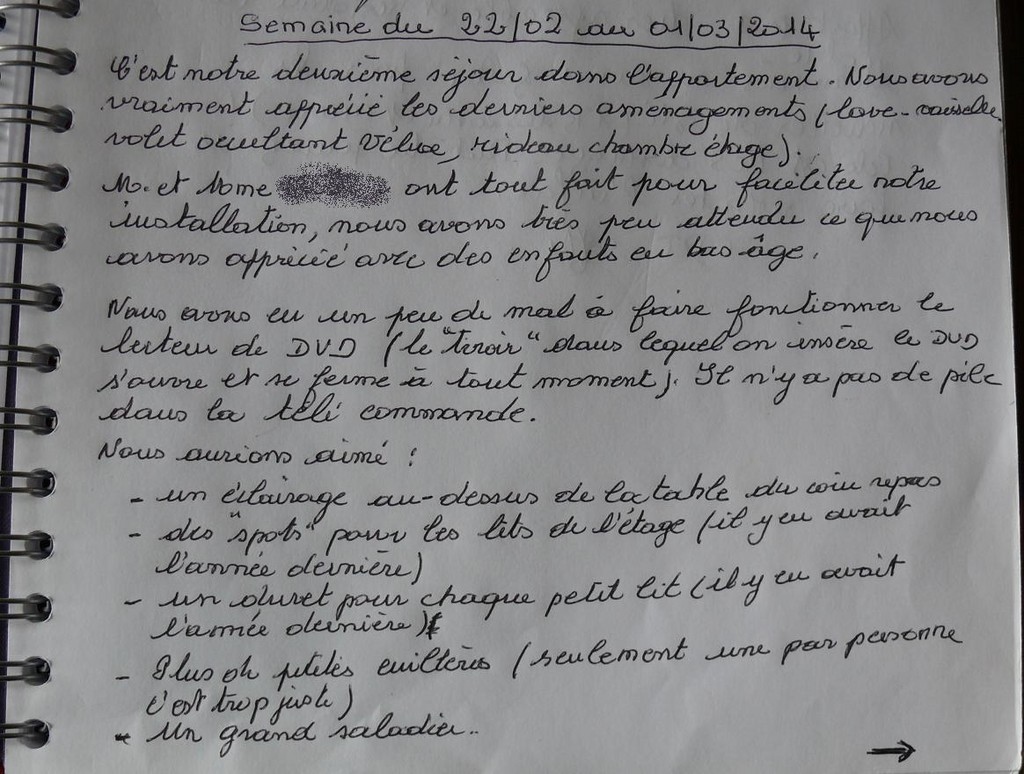 Semaine du 22/02 au 01/03/2014
C'est notre deuxième séjour dans l'appartement. Nous avons
vraiment apprécié les derniers aménagements (lave-vaisselle,
volet occultant Vélux, rideau chambre étage).
M. et Mme ont tout fait pour faciliter notre
installation, nous avons très peu attendu ce que nous
avons apprécié avec des enfants en bas-âge.
Nous avons eu un peu de mal à faire fonctionner le
lecteur de DVD (le "tiroir" dans lequel on insère le DVD
s'ouvre et se ferme à tout moment). Il n'y a pas de pile
dans la télé commande.
Nous aurions aimé :
- un éclairage au-dessus de la table du coin repas
- des "spots" pour les lits de l'étage (il y en avait
l'année dernière)
- un duvet pour chaque petit lit (il y en avait
l'année dernière)
- Plus de petites cuillères (seulement une par personne
c'est trop juste)
- Un grand saladier..
→